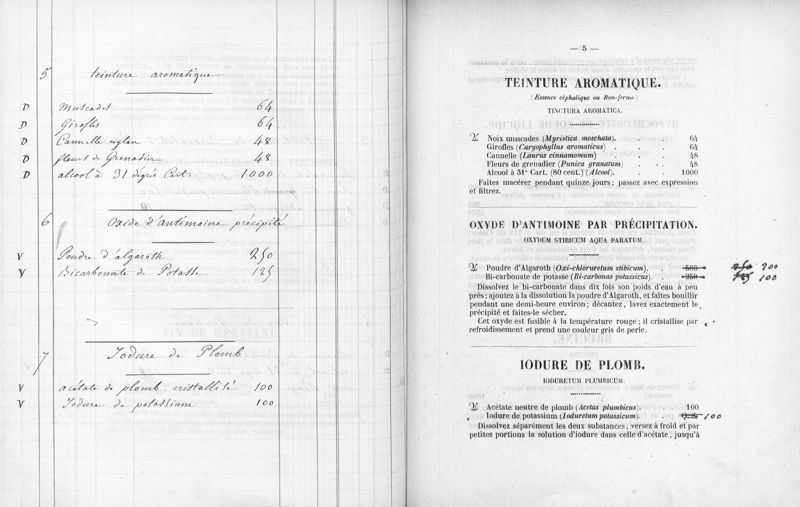 5 teinture aromatique
D Muscades 64
D Girofles 64
D Cannelle 48
D fleurs de Grenadier 48
D alcool à 31 degrés Cart. 1000
6 Oxide d'antimoine précipité
V Poudre d'algaroth 250
V Bicarbonate de Potasse 125
7 Iodure de Plomb
V acétate de plomb cristallisé 100
V Iodure de potassium 100
— 5 —
TEINTURE AROMATIQUE.
(Essence céphalique ou Bon-ferme.)
TINCTURA AROMATICA.
♃ Noix muscades (Myristica moschata). 64
Girofles (Caryophyllus aromaticus) . . 64
Cannelle (Laurus cinnamomum) . . 48
Fleurs de grenadier (Punica granatum) . . 48
Alcool à 31° Cart. (80 cent.) (Alcool). . 1000
Faites macérer pendant quinze jours; passez avec expression
et filtrez.
OXYDE D'ANTIMOINE PAR PRÉCIPITATION.
OXYDUM STIBICUM AQUA PARATUM.
♃ Poudre d'Algaroth (Oxi-chloruretum stibicum). . 500 250 200
Bi-carbonate de potasse (Bi-carbonas potassicus). . 250 125 100
Dissolvez le bi-carbonate dans dix fois son poids d'eau à peu
près; ajoutez à la dissolution la poudre d'Algaroth, et faites bouillir
pendant une demi-heure environ; décantez, lavez exactement le
précipité et faites-le sécher.
Cet oxyde est fusible à la température rouge; il cristallise par
refroidissement et prend une couleur gris de perle.
IODURE DE PLOMB.
IODURETUM PLUMBICUM.
♃ Acétate neutre de plomb (Acetas plumbicus). 100
Iodure de potassium (Ioduretum potassicum). . 100
Dissolvez séparément les deux substances, versez à froid et par
petites portions la solution d'iodure dans celle d'acétate, jusqu'à